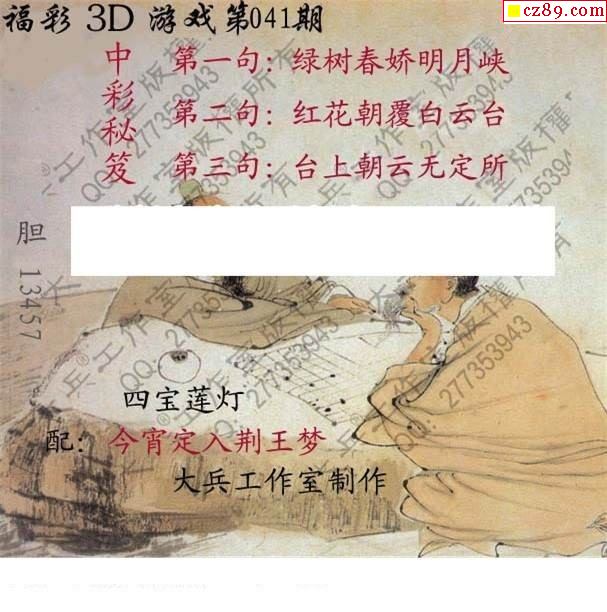 福彩 3D 游戏第041期
cz89.com
中彩秘笈
第一句：绿树春娇明月峡
第二句：红花朝覆白云台
第三句：台上朝云无定所
胆 13457
四宝莲灯
配：今宵定入荆王梦
大兵工作室制作
大兵®工作室版权所有
QQ: 277353943